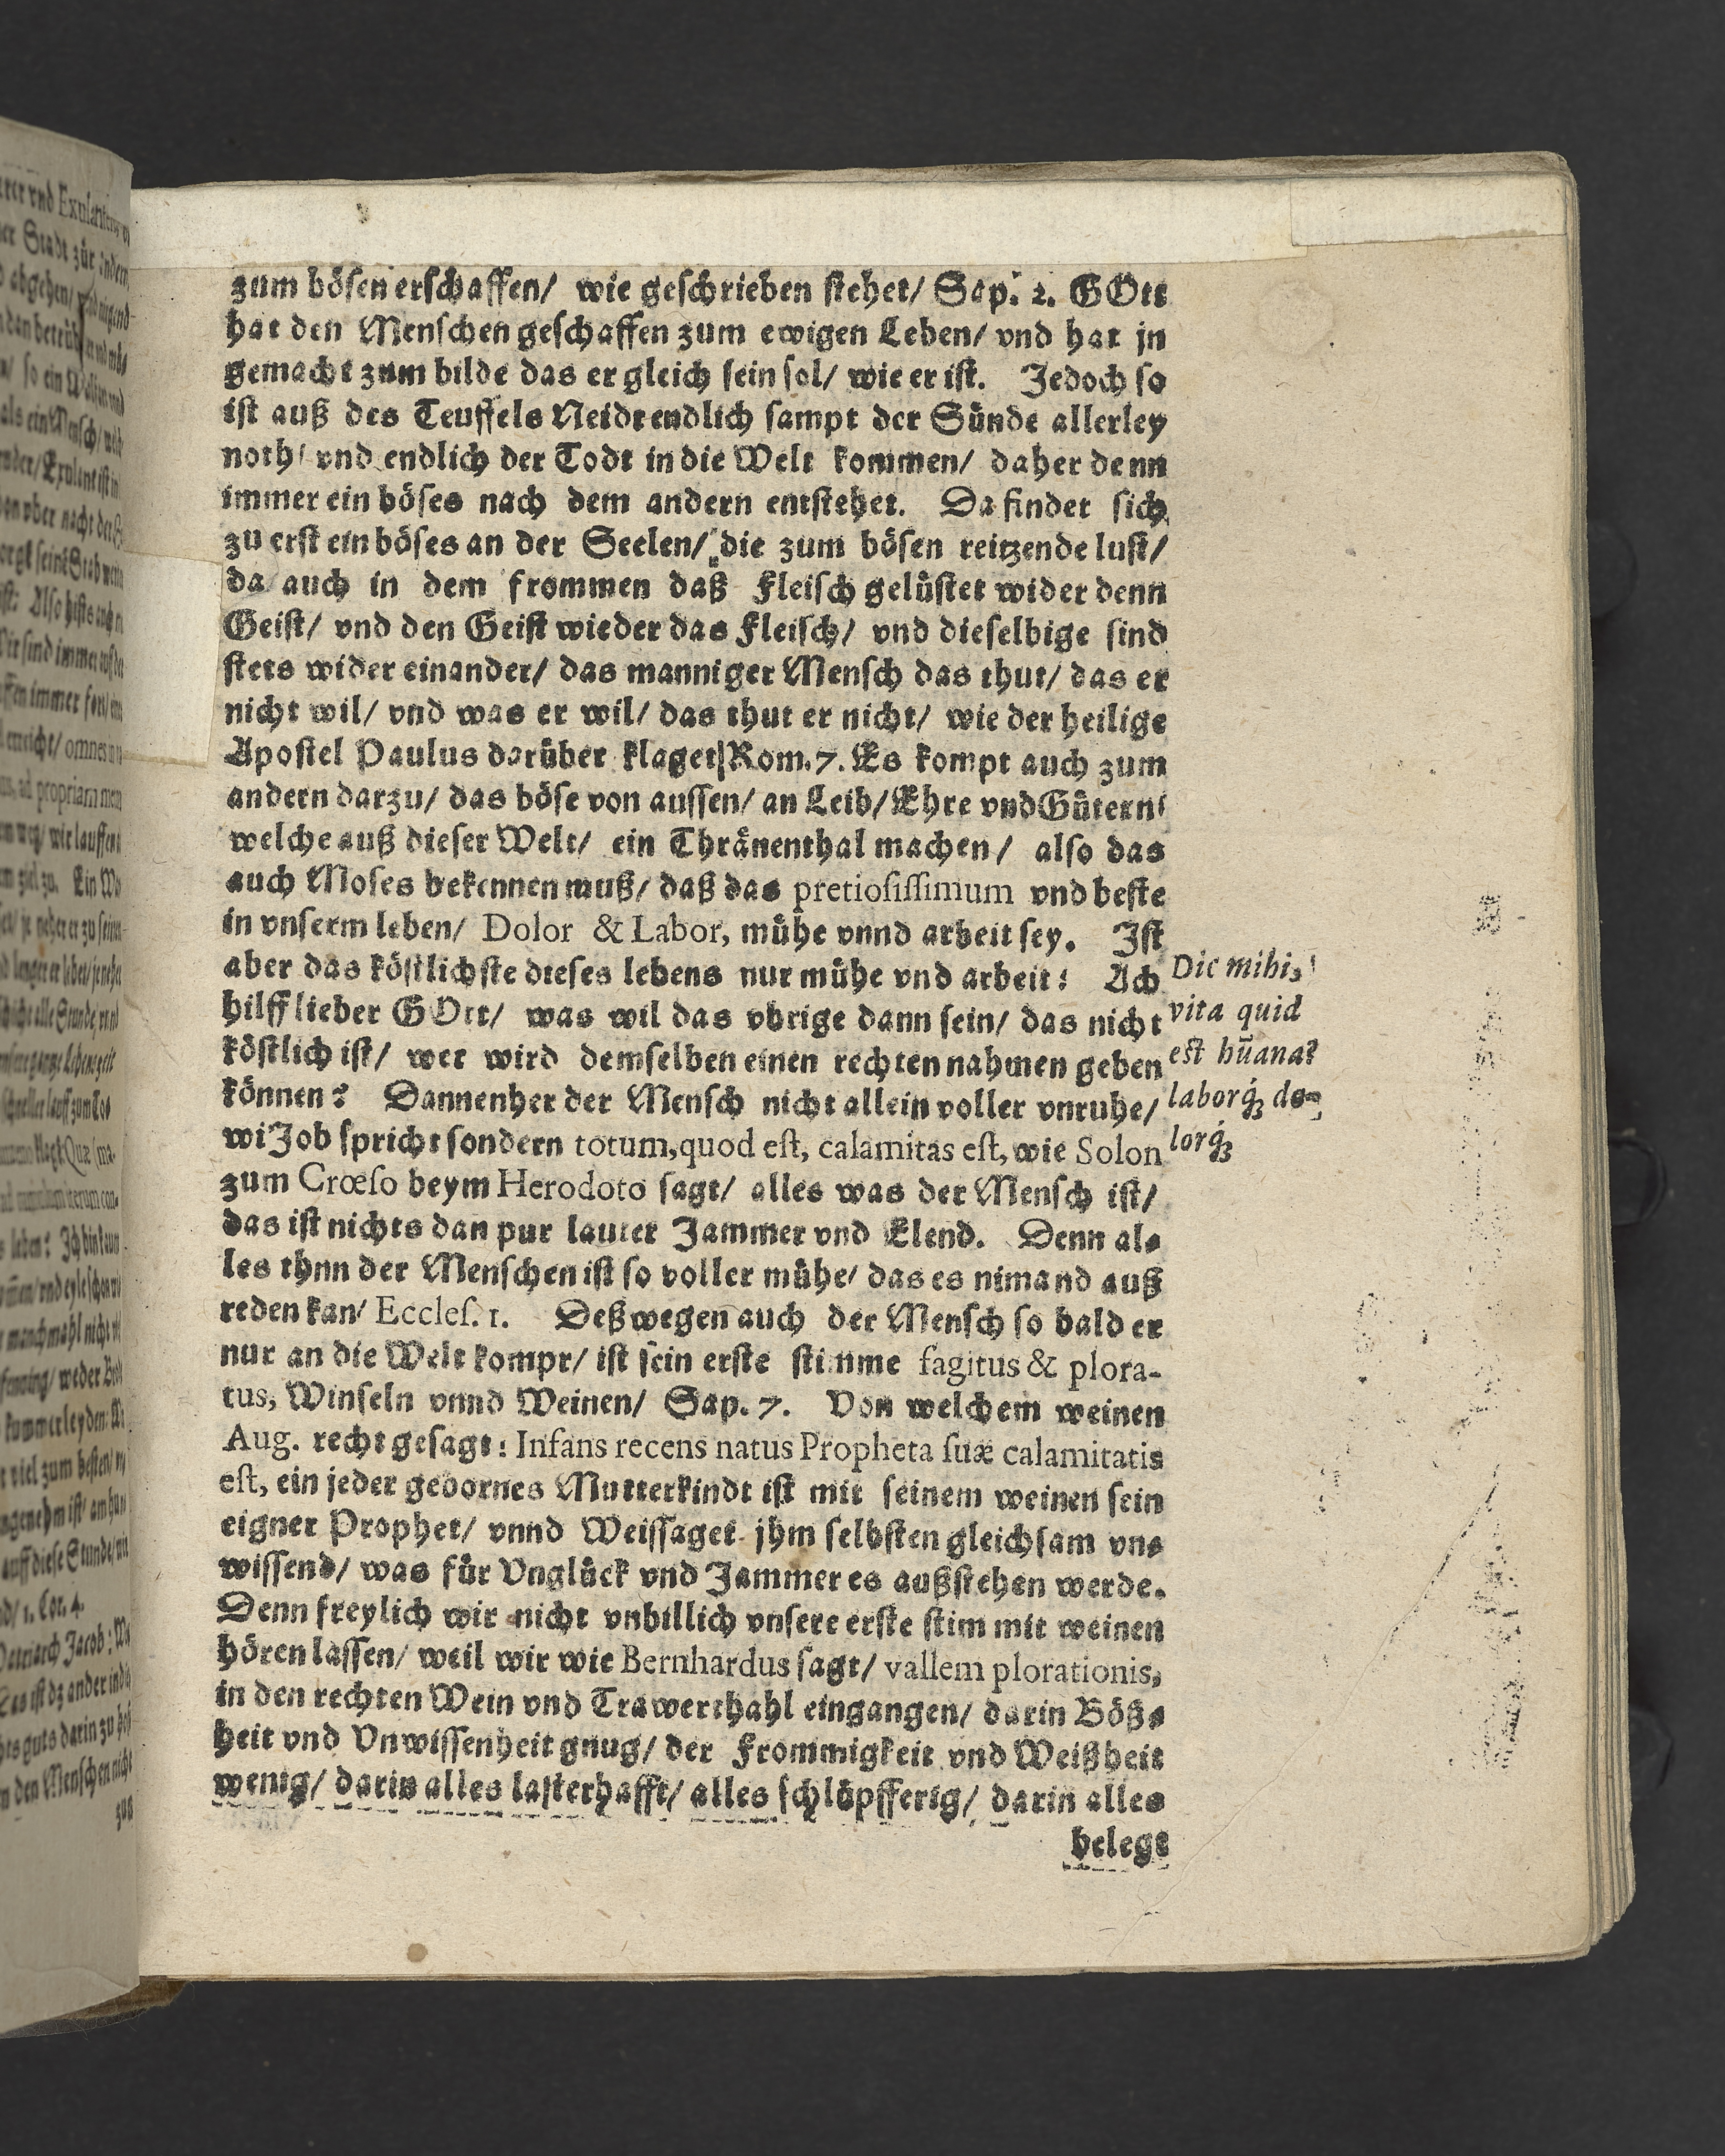 zum bösen erschaffen/ wie geschrieben stehet/ Sap. 2. GOtt
hat den Menschen geschaffen zum ewigen Leben/ vnd hat jn
gemacht zum bilde das er gleich sein sol/ wie er ist. Jedoch so
ist auß des Teuffels Neidt endlich sampt der Sünde allerley
noth/ vnd endlich der Todt in die Welt kommen/ daher denn
immer ein böses nach dem andern entstehet. Da findet sich
zu erst ein böses an der Seelen/ die zum bösen reitzende lust/
da auch in dem frommen daß Fleisch gelüstet wider denn
Geist/ vnd den Geist wieder das Fleisch/ vnd dieselbige sind
stets wider einander/ das manniger Mensch das thut/ das er
nicht wil/ vnd was er wil/ das thut er nicht/ wie der heilige
Apostel Paulus darüber klaget/ Rom. 7. Es kompt auch zum
andern darzu/ das böse von aussen/ an Leib/ Ehre vnd Gütern/
welche auß dieser Welt/ ein Thränenthal machen/ also das
auch Moses bekennen muß/ daß das pretiosissimum vnd beste
in vnserm leben/ Dolor & Labor, mühe vnnd arbeit sey. Ist
aber das köstlichste dieses lebens nur mühe vnd arbeit: Ach
hilff lieber GOtt/ was wil das vbrige dann sein/ das nicht
köstlich ist/ wer wird demselben einen rechten nahmen geben
können? Dannenher der Mensch nicht allein voller vnruhe/
wi Job spricht sondern totum, quod est, calamitas est, wie Solon
zum Crœso beym Herodoto sagt/ alles was der Mensch ist/
das ist nichts dan pur lauter Jammer vnd Elend. Denn al-
les thnn der Menschen ist so voller mühe/ das es nimand auß
reden kan/ Eccles. 1. Deßwegen auch der Mensch so bald er
nur an die Welt kompt/ ist sein erste stimme fagitus & plora-
tus, Winseln vnnd Weinen/ Sap. 7. Von welchem weinen
Aug. recht gesagt: Infans recens natus Propheta suæ calamitatis
est, ein jeder gebornes Mutterkindt ist mit seinem weinen sein
eigner Prophet/ vnnd Weissaget jhm selbsten gleichsam vn-
wissend/ was für Vnglück vnd Jammer es außstehen werde.
Denn freylich wir nicht vnbillich vnsere erste stim mit weinen
hören lassen/ weil wir wie Bernhardus sagt/ vallem plorationis,
in den rechten Wein vnd Trawerthahl eingangen/ darin Böß-
heit vnd Vnwissenheit gnug/ der Frommigkeit vnd Weißheit
wenig/ darin alles lasterhafft/ alles schlöpfferig/ darin alles
belegt
Dic mihi,
vita quid
est hūana?
laborq́ꝫ do-
lorq́ꝫ